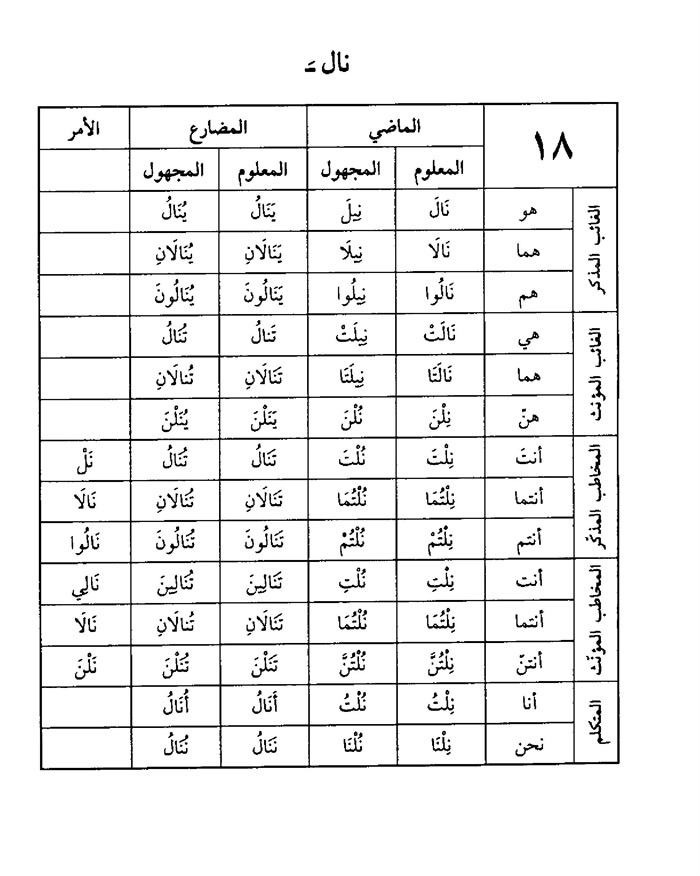 نال ـَ
١٨ الماضي المضارع الأمر
المعلوم المجهول المعلوم المجهول
الغائب المذكر
هو نَالَ نِيلَ يَنَالُ يُنَالُ
هما نَالَا نِيلَا يَنَالَانِ يُنَالَانِ
هم نَالُوا نِيلُوا يَنَالُونَ يُنَالُونَ
الغائب المؤنث
هي نَالَتْ نِيلَتْ تَنالُ تُنَالُ
هما نَالَتَا نِيلَتَا تَنَالَانِ تُنالَانِ
هنّ نِلْنَ نُلْنَ يَنَلْنَ يُنَلْنَ
المخاطب المذكّر
أنتَ نِلْتَ نُلْتَ تَنَالُ تُنَالُ نَلْ
أنتما نِلْتُمَا نُلْتُمَا تَنَالَانِ تُنَالَانِ نَالَا
أنتم نِلْتُمْ نُلْتُمْ تَنَالُونَ تُنَالُونَ نَالُوا
المخاطب المؤنّث
أنت نِلْتِ نُلْتِ تَنَالِينَ تُنَالِينَ نَالِي
أنتما نِلْتُمَا نُلْتُمَا تَنَالَانِ تُنالَانِ نَالَا
أنتنّ نِلْتُنَّ نُلْتُنَّ تَنَلْنَ تُنَلْنَ نَلْنَ
المتكلم
أنا نِلْتُ نُلْتُ أَنَالُ أُنَالُ
نحن نِلْنَا نُلْنَا نَنَالُ نُنَالُ